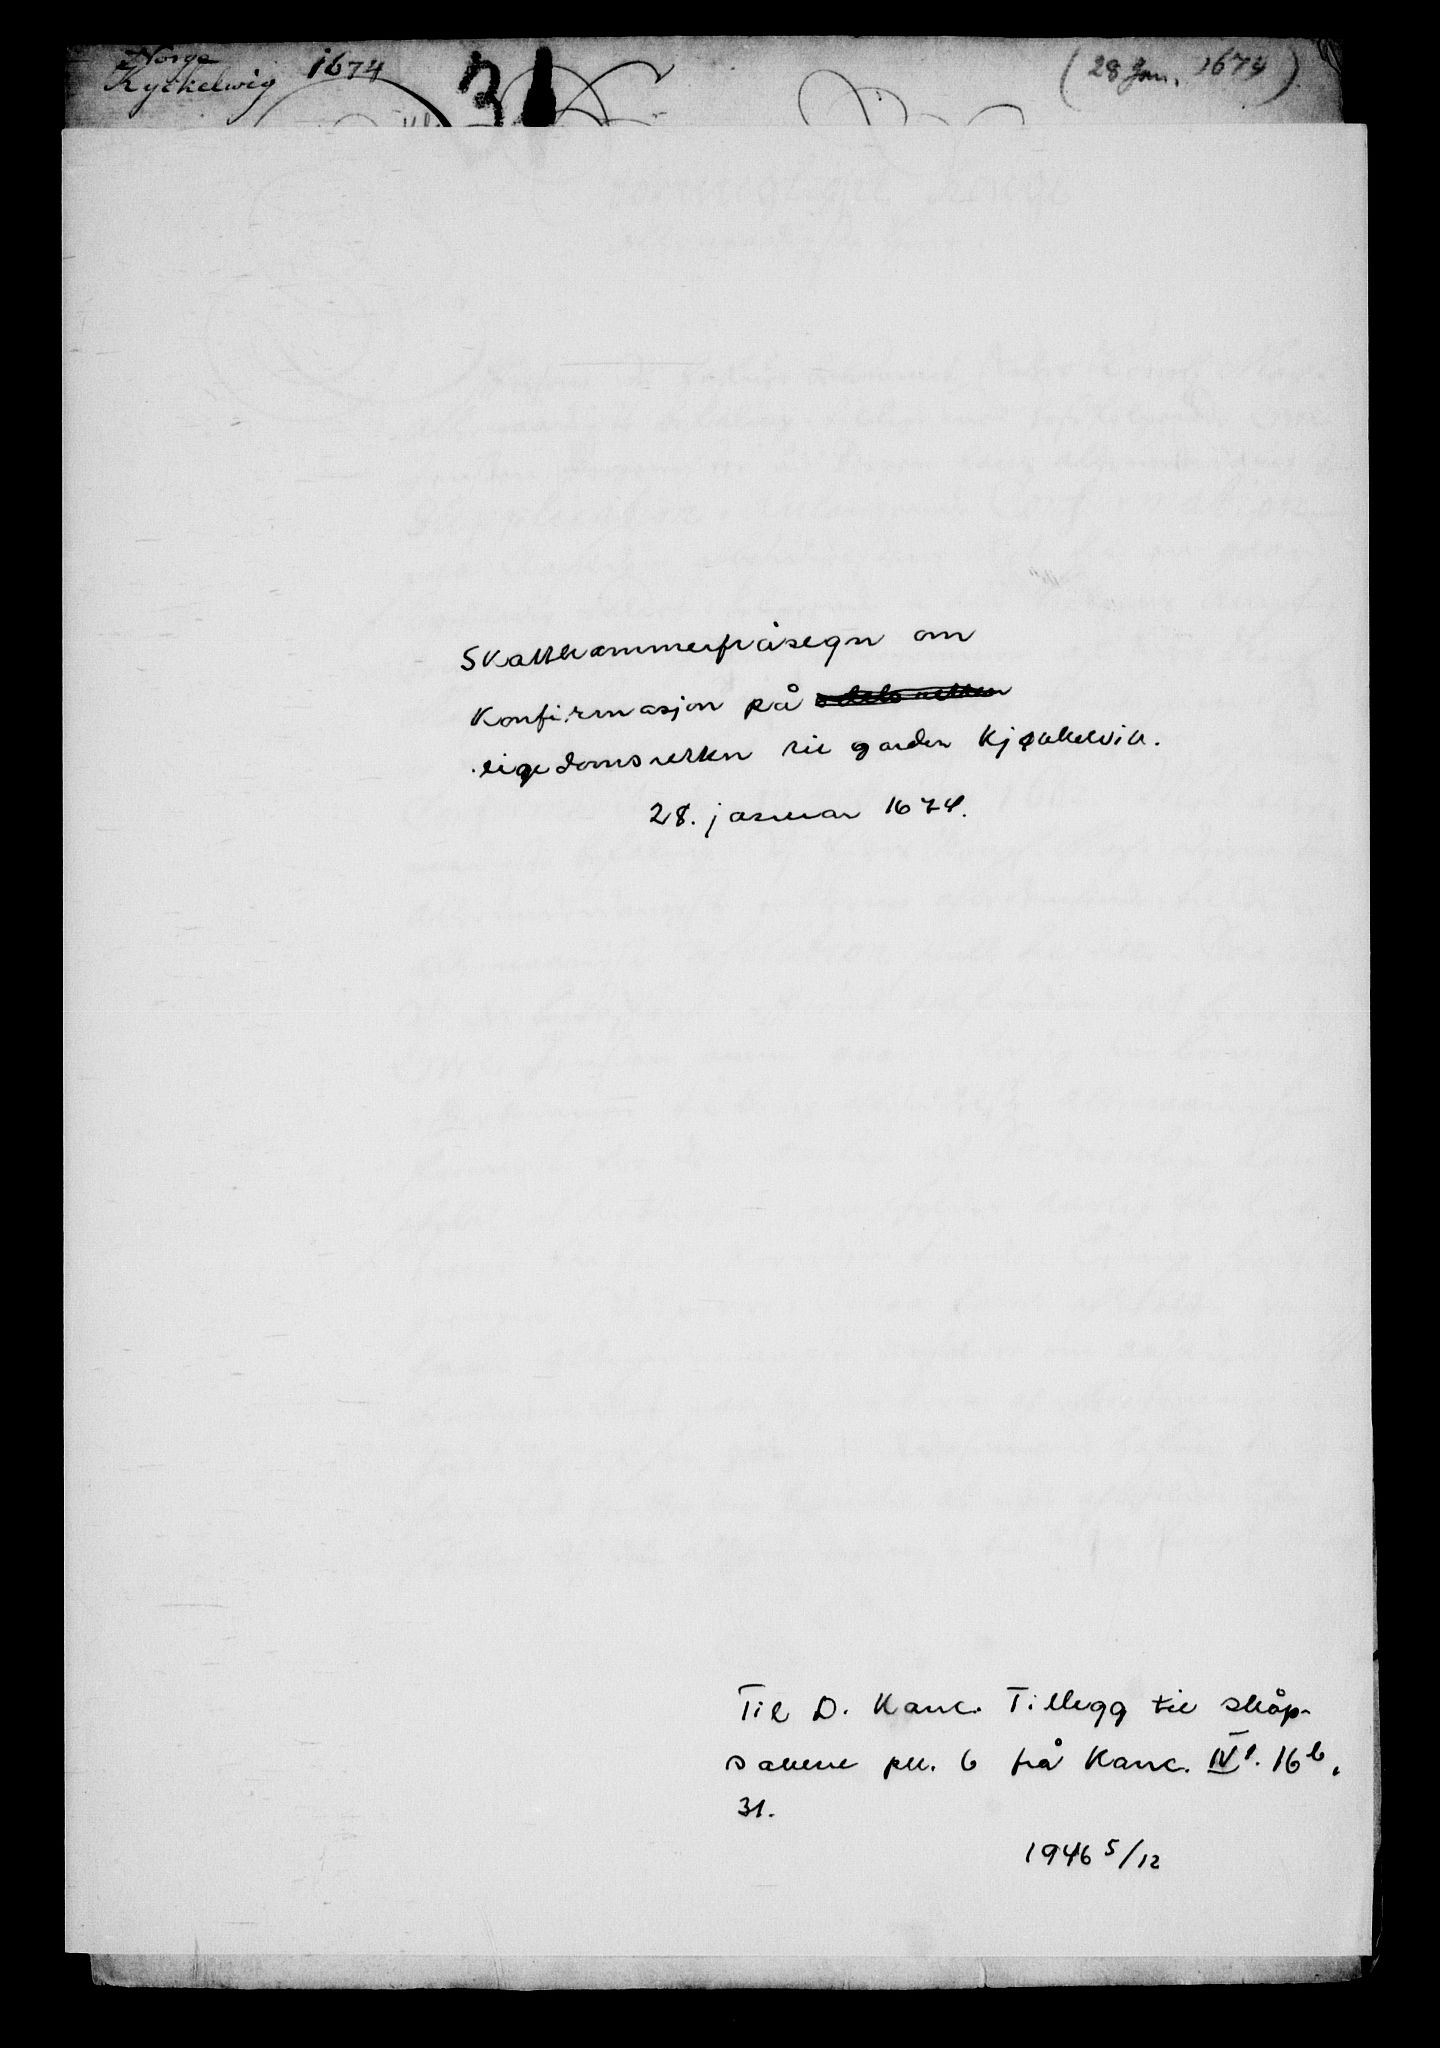 Norge
Kyckelwig 1674
31
(28 Jan. 1674)
Skattkammerfråsegn om
Konfirmasjon på
eigedomsretten til garden Kjøkkelvik.
28. januar 1674.
Til D. Kanc. Tillegg til skåp-
sakene pk. 6 frå Kanc. IV 1. 16b,
31.
1946 5/12